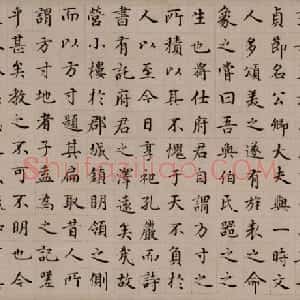 貞節名公卿大夫與一時文
人多頌美之遂有之命
象之嘗曰吾與伯氏之
生也嘗仕府君自謂方寸之
所積以其不愧于天不負于
人以至今日尊祀孔嚴而詩
書有託府君之澤遠矣故
營小樓於郡城鎖明領之側
而以方寸題其扁取昔人所
謂方寸地者子盍為之記噫
乎甚矣教之不可不明也今
Shufaziliao.com